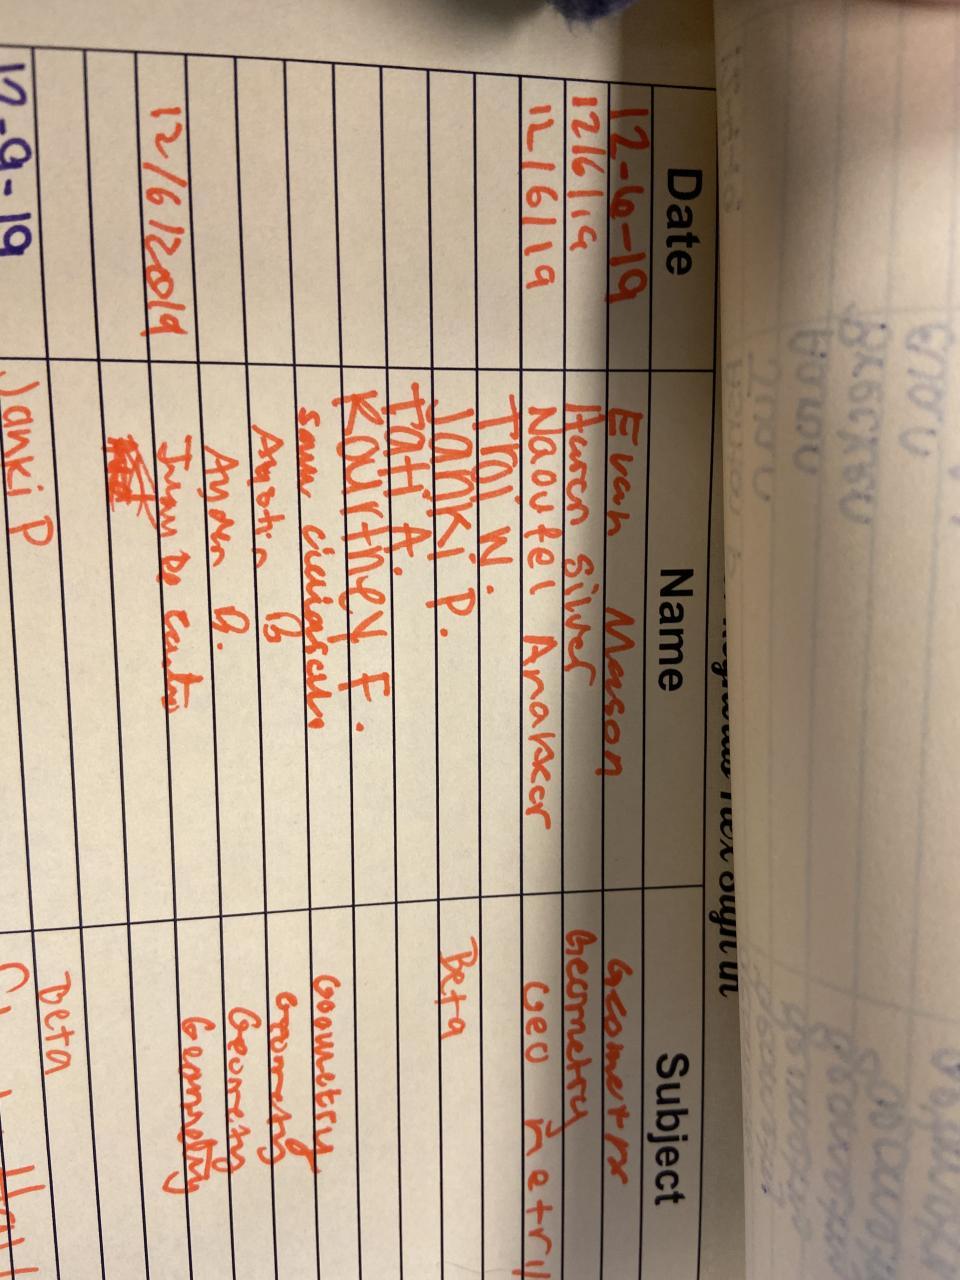 Flex Sign in
Date Name Subject
12-6-19 Evan Mason Geometry
12/6/19 Auren Silver Geometry
12/6/19 Naoufel Anakkar Geo metry
Troi W.
Janki P. Beta
Tati A.
Kourtney F.
sam Geometry
Austin B Geometry
Ayden B. Geometry
12/6/2019 Geometry
12-9-19 Janki P Beta